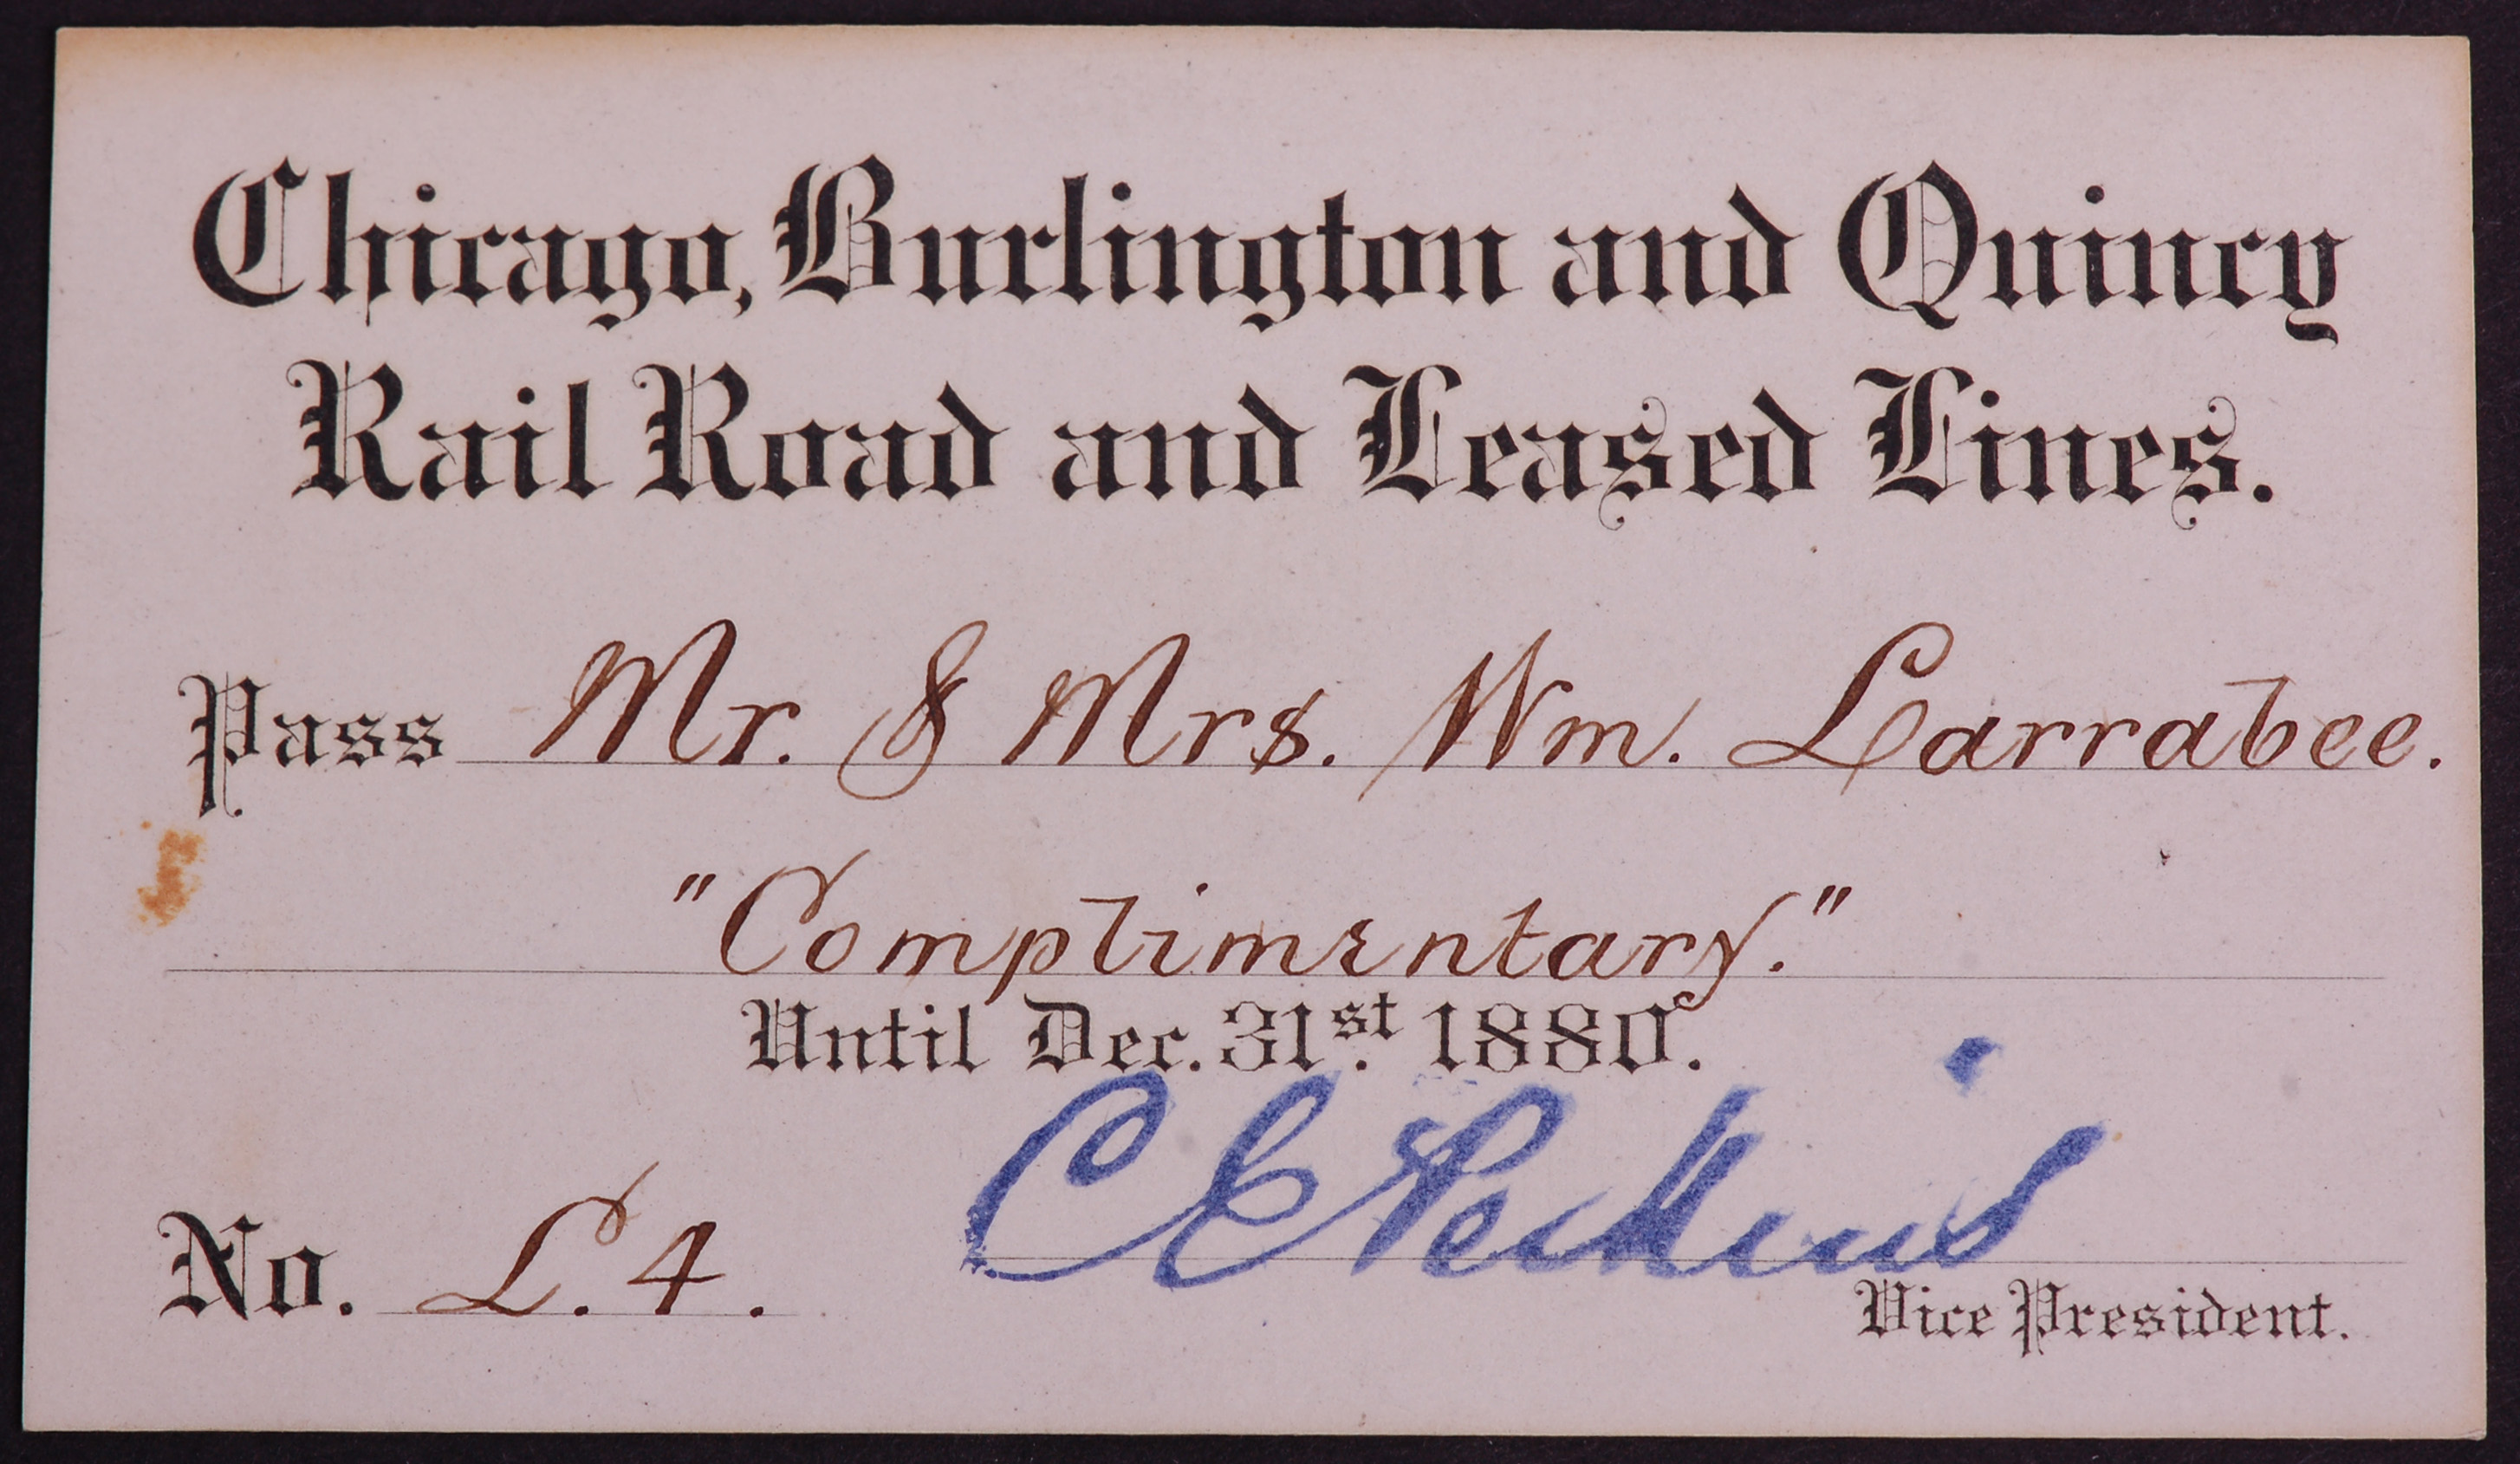 Chicago, Burlington and Quincy
Rail Road and Leased Lines.
Pass Mr. & Mrs. Wm. Larrabee.
"Complimentary."
Until Dec. 31st. 1880.
C E Perkins
No. L. 4.
Vice President.